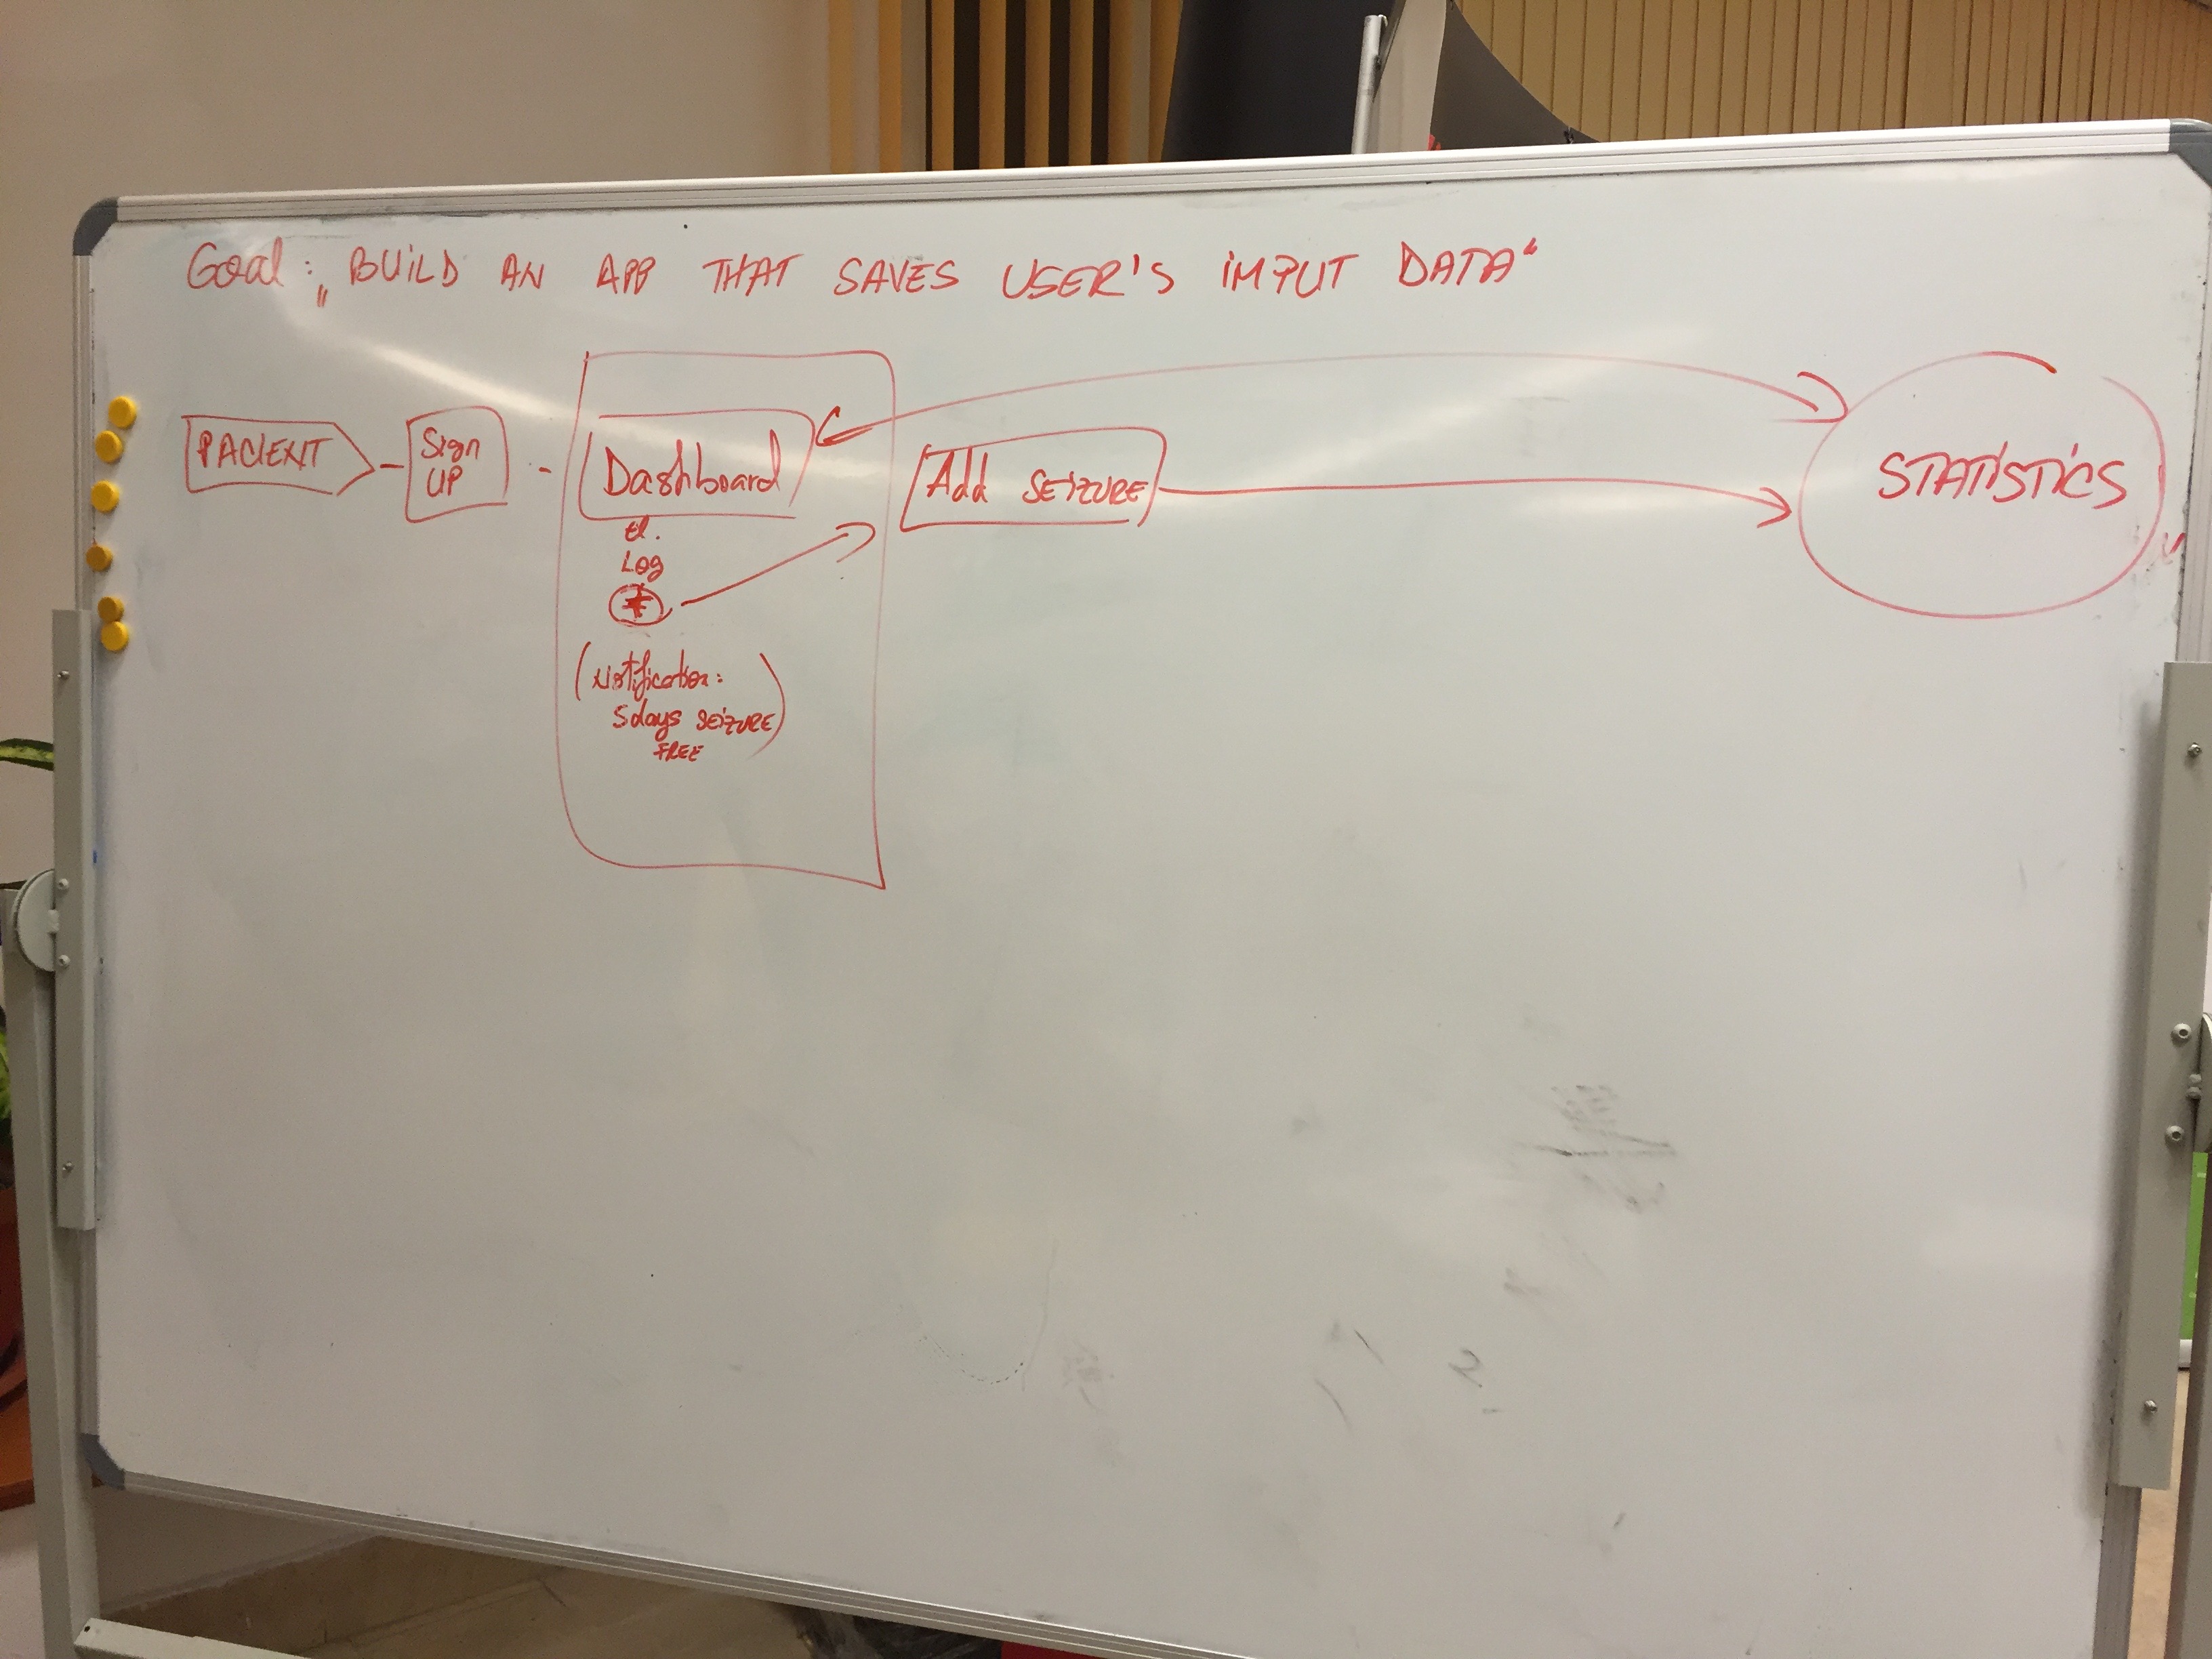 Goal: „BUILD AN APP THAT SAVES USER'S IMPUT DATA“
PACIENT
Sign
UP
Dashboard
el.
Log
+
(Notification:
5days SEIZURE)
FREE
Add SEIZURE
STATISTICS